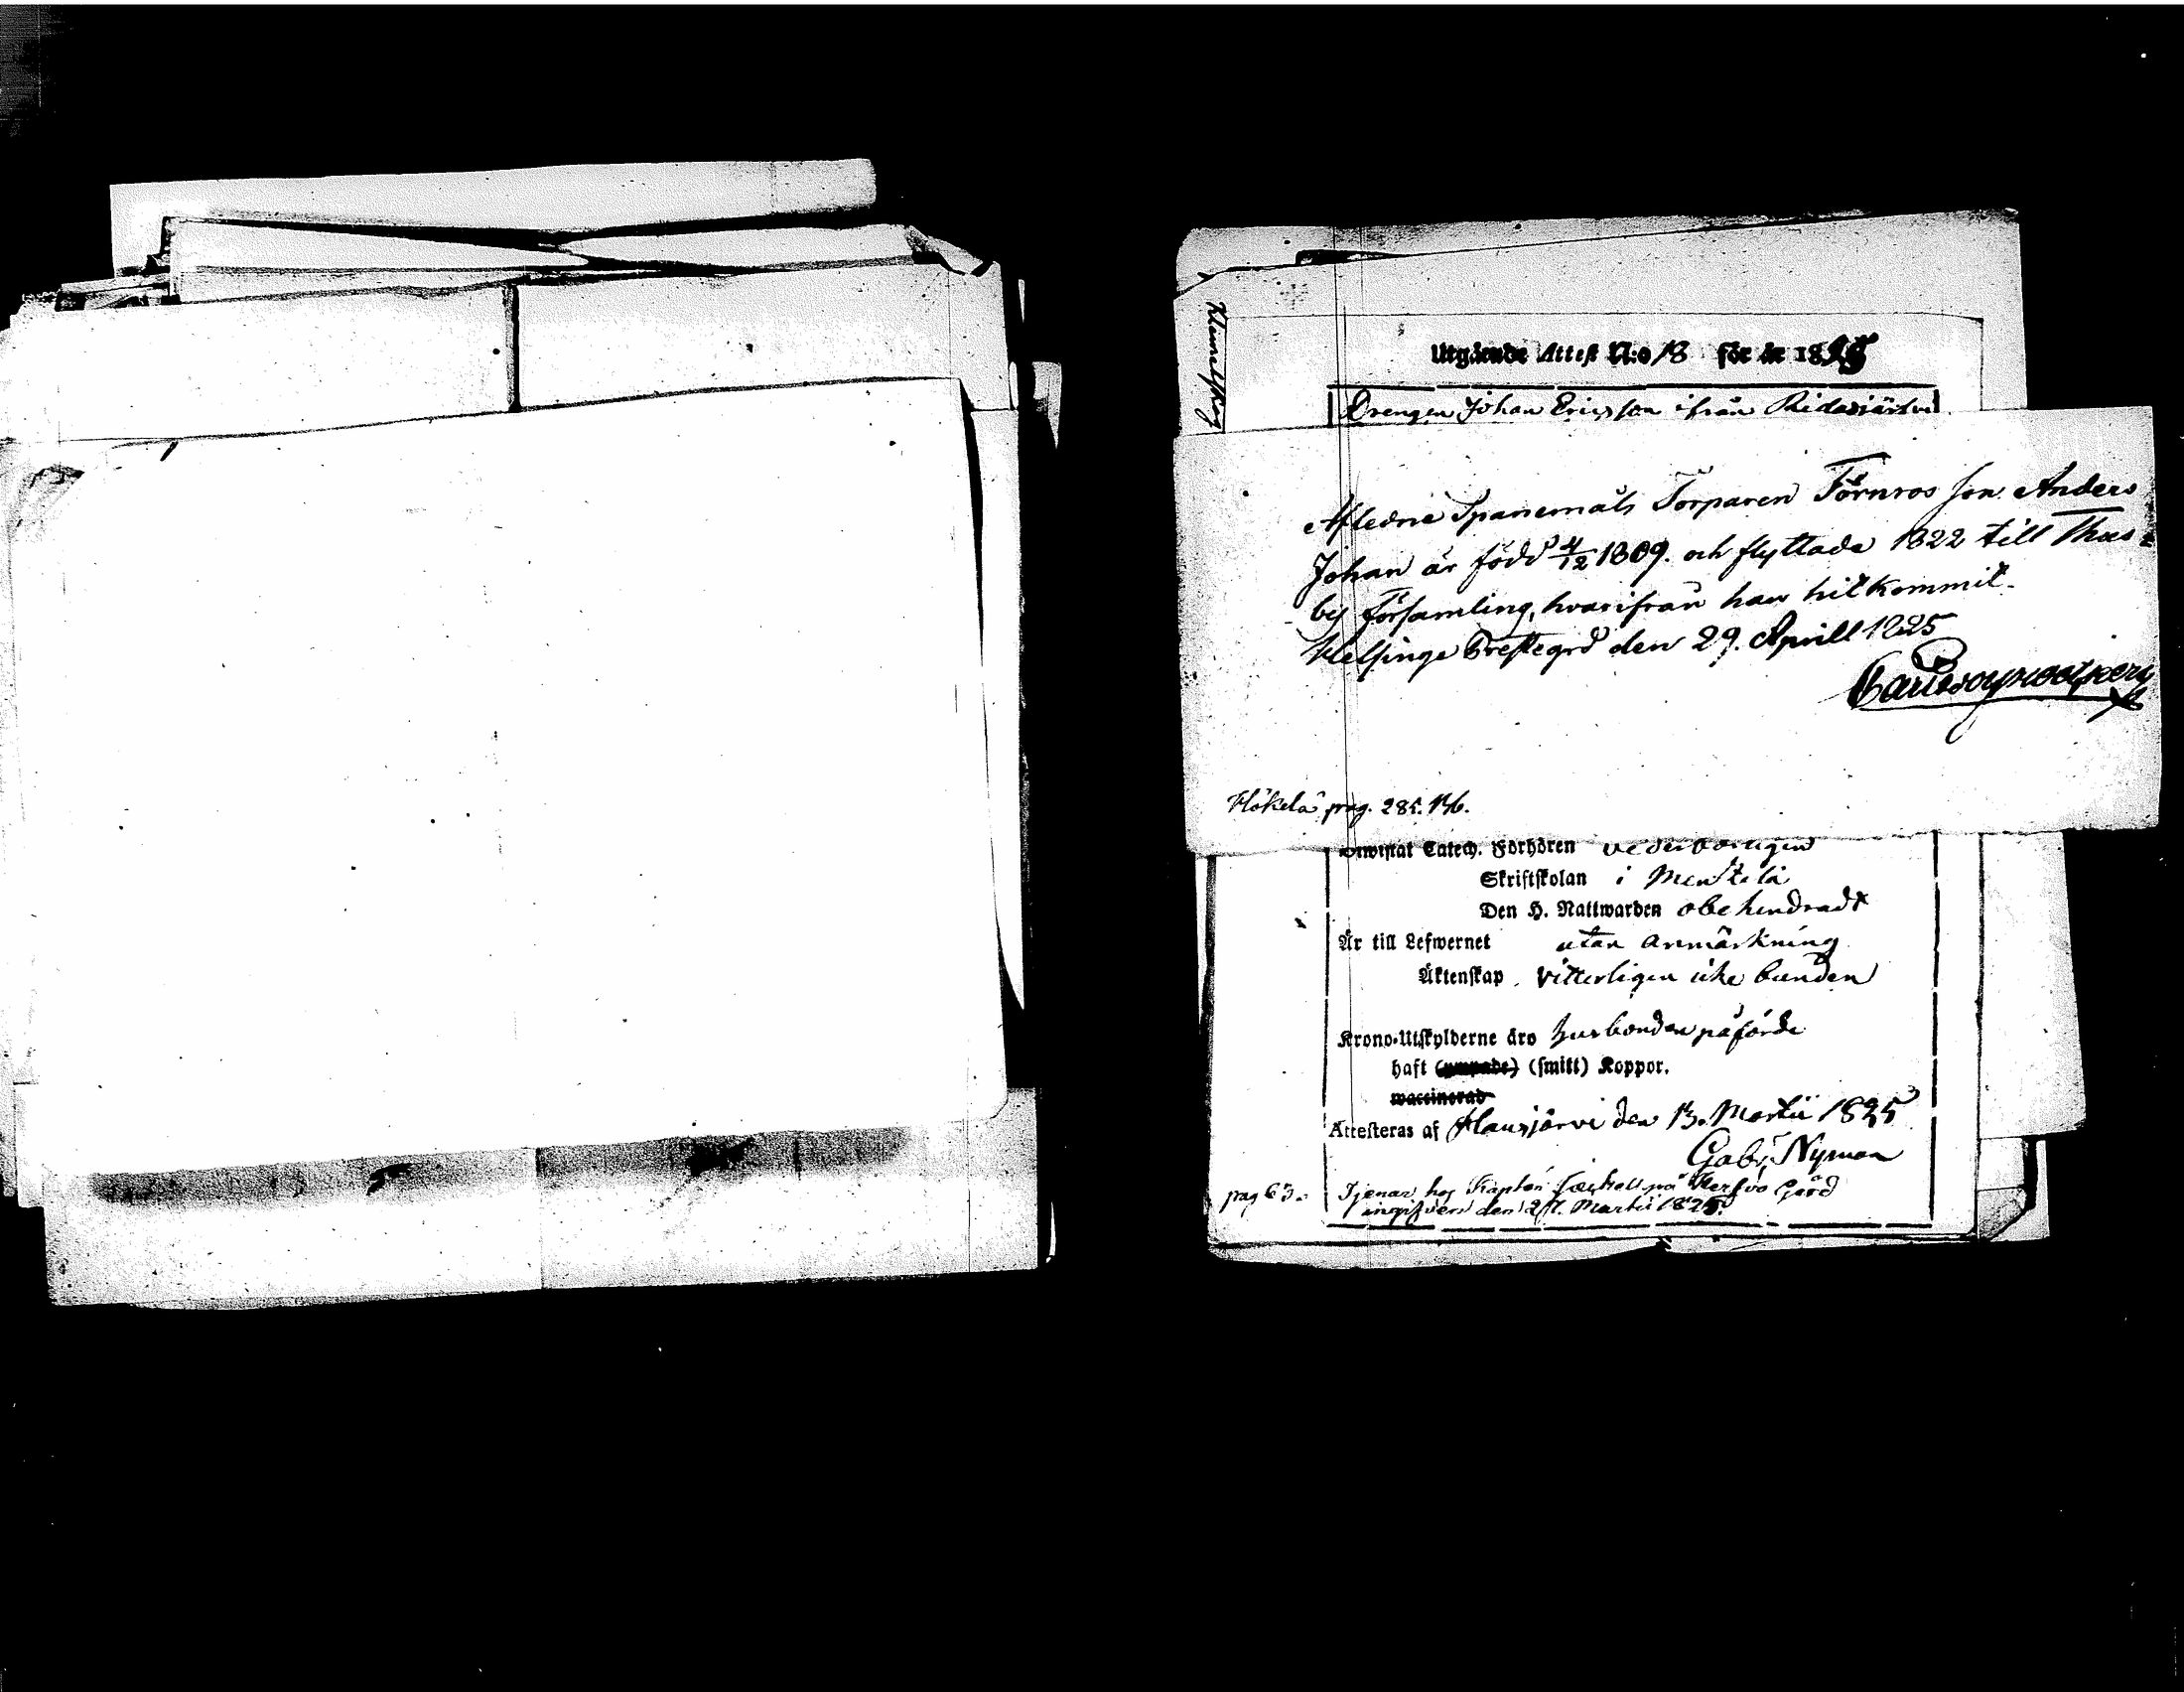 Utgående Attest N:o 18 för år 1825
Drengen Johan Ericsson ifrån Ridasjärvi
Afledne Spanemäls Torparen Törnros son Anders
Johan är född 4/12 1809. och flyttade 1822 till Thus-
by Församling, hvarifrån han hitkommit.
Helsinge Prestegrd den 29. Aprill 1825
Hökelä pag. 285. 136.
Catech. Förhören vederbörligen
Skriftskolan i
Den H. Nattwarden obehindradt
Är till Lefwernet utan anmärkning
Äktenskap vitterligen icke bunden
Krono-Utskylderne äro husbonden påförde
haft (ympade) (smitt) Koppor.
waccinerad
Attesteras af Hausjärvi den 13. Martii 1825
Gabr. Nyman
pag 63. Tjenar hos Kapten på Kerfvo Gård
ingifven den 27. Martii 1825.